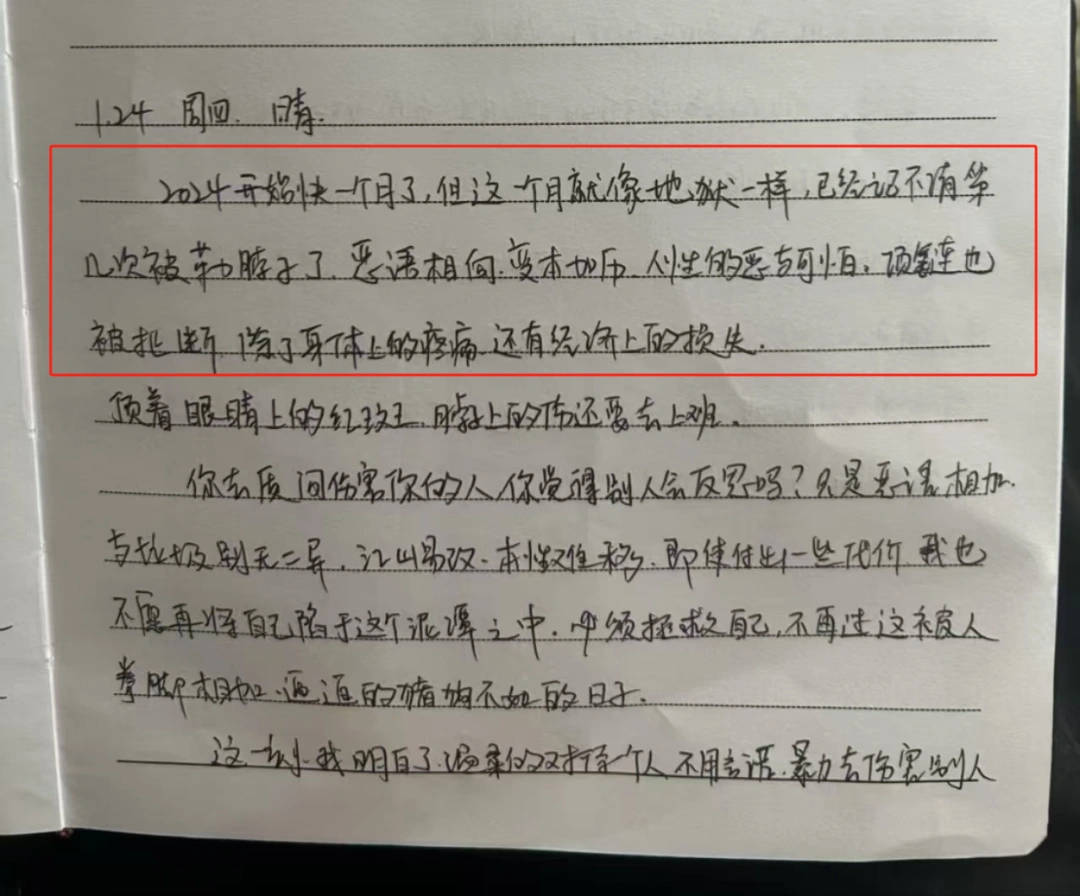 1.24 周四. 晴.
2024开始快一个月了,但这一个月就像地狱一样,已经记不清第
几次被勒脖子了.恶语相向.变本加厉.人性的恶与可怕。项链也
被扯断 除了身体上的疼痛.还有经济上的损失.
顶着眼睛上的红斑.脖子上的伤还要去上班。
你去质问伤害你的人你觉得别人会反思吗?只是恶语相加.
与垃圾别无二异.江山易改.本性难移.即使付出一些代价 我也
不愿再将自己陷于这个泥潭之中.必须拯救自己,不再过这被人
拳脚相加.逼迫的猪狗不如的日子.
这一刻.我明白了温柔的对待一个人 不用言语.暴力去伤害别人